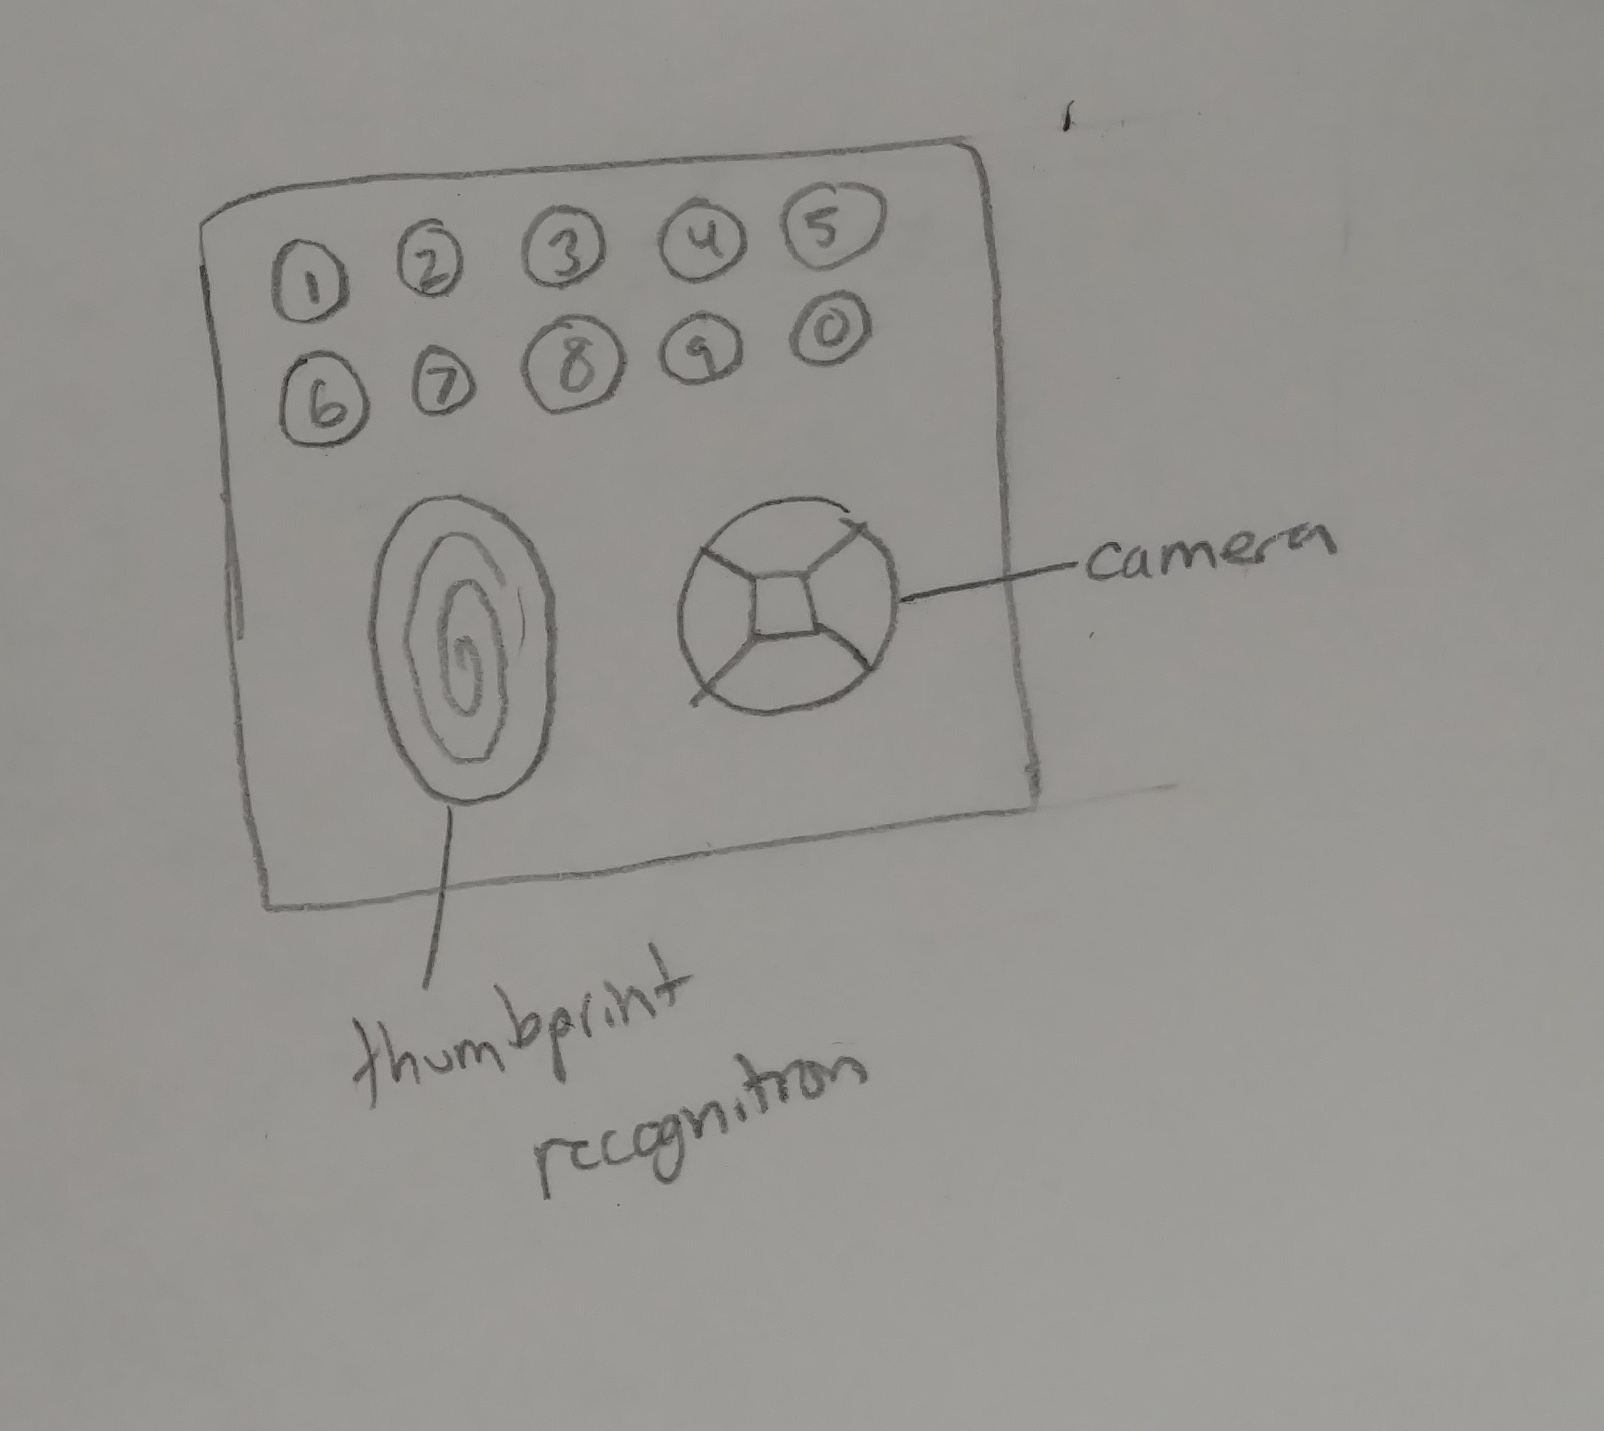 1 2 3 4 5
6 7 8 9 0
camera
thumbprint
recognition